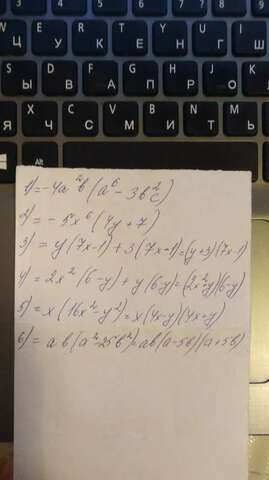 W E R T Y U I
Ц У К Е Н Г Ш
S D F G H J K
Ы В А П Р О Л
X C V B N M
Ч С М И Т Ь
Alt
1) = -4a²b(a⁶ - 3b²c)
2) = -5x⁶(4y + 7)
3) = y(7x-1) + 3(7x-1) = (y+3)(7x-1)
4) = 2x²(6-y) + y(6-y) = (2x²+y)(6-y)
5) = x(16x²-y²) = x(4x-y)(4x+y)
6) = ab(a²-25b²) = ab(a-5b)(a+5b)